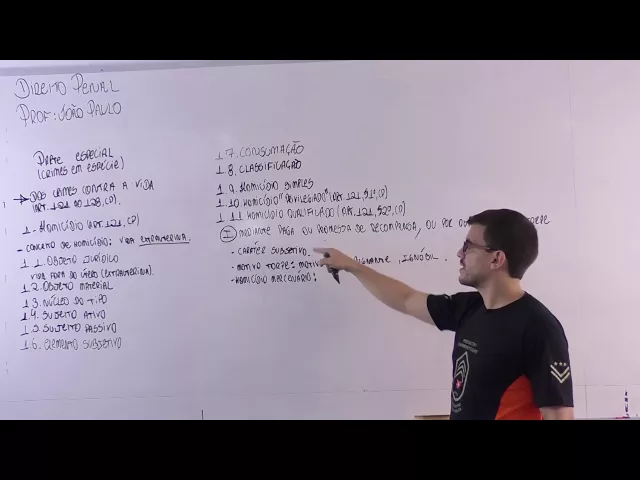 DIREITO PENAL
PROF: JOÃO PAULO
PARTE ESPECIAL
(CRIMES EM ESPÉCIE)
DOS CRIMES CONTRA A VIDA
(ART. 121 AO 128, CP).
1 - HOMICÍDIO (ART. 121, CP)
- CONCEITO DE HOMICÍDIO: VIDA EXTRAUTERINA.
1.1. OBJETO JURÍDICO
VIDA FORA DO ÚTERO (EXTRAUTERINA).
1.2. OBJETO MATERIAL
1.3. NÚCLEO DO TIPO
1.4. SUJEITO ATIVO
1.5. SUJEITO PASSIVO
1.6. ELEMENTO SUBJETIVO
1.7. CONSUMAÇÃO
1.8. CLASSIFICAÇÃO
1.9. HOMICÍDIO SIMPLES
1.10. HOMICÍDIO "PRIVILEGIADO" (ART. 121, §1º, CP)
1.11. HOMICÍDIO QUALIFICADO (ART. 121, §2º, CP)
I MEDIANTE PAGA OU PROMESSA DE RECOMPENSA, OU POR TORPE
- CARÁTER SUBJETIVO.
- MOTIVO TORPE: MOTIVO , IGNÓBIL.
- HOMICÍDIO MERCENÁRIO: